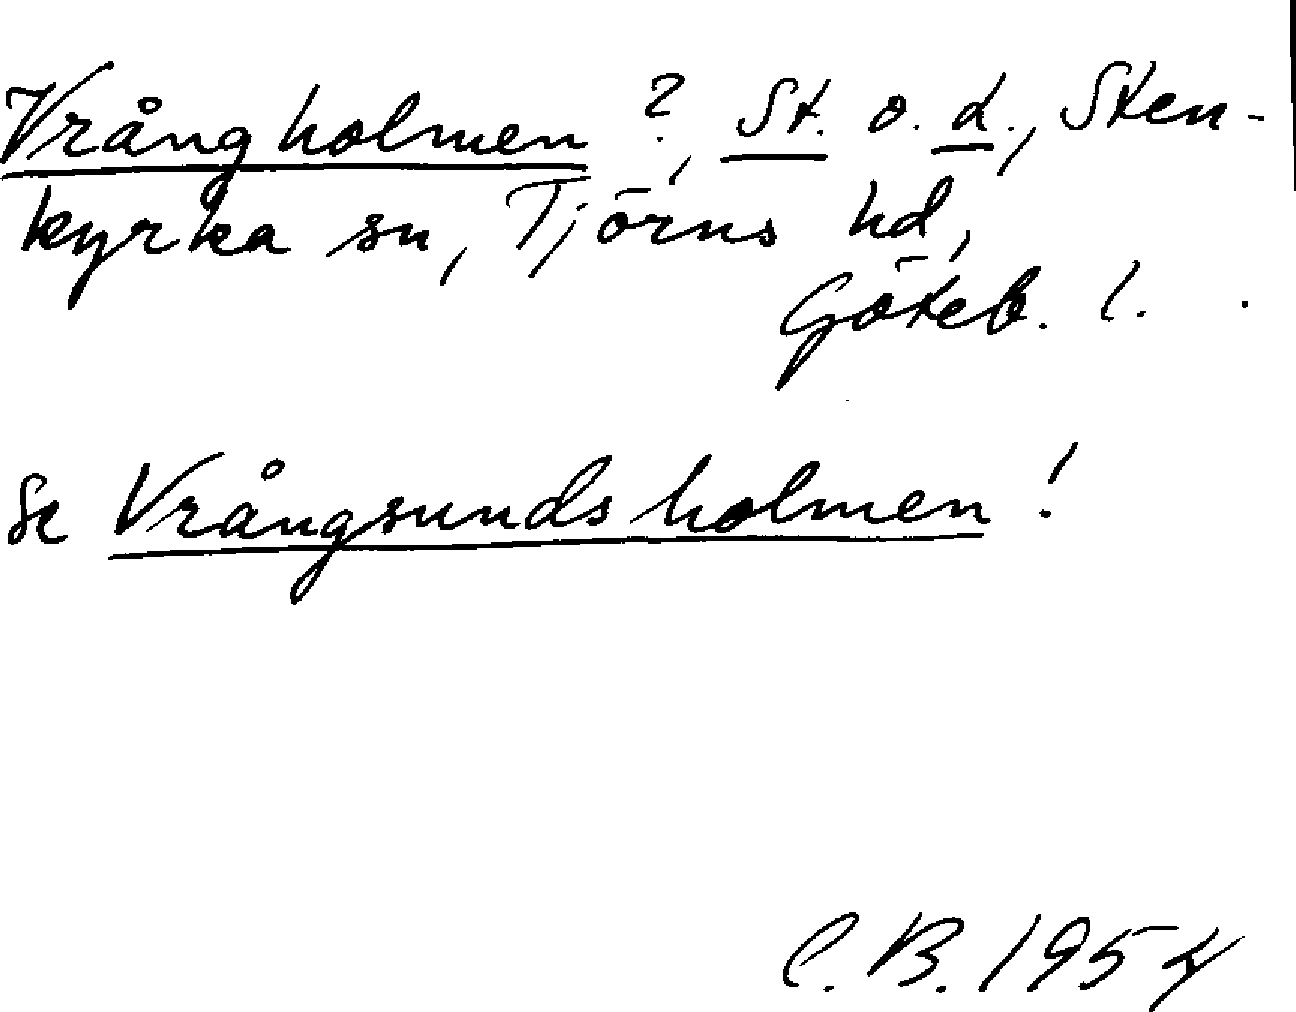 Vrångholmen ?, St. o. d., Sten-
kyrka sn, Tjörns hd,
Göteb. l.
Se Vrångsundsholmen !
C. B. 1954